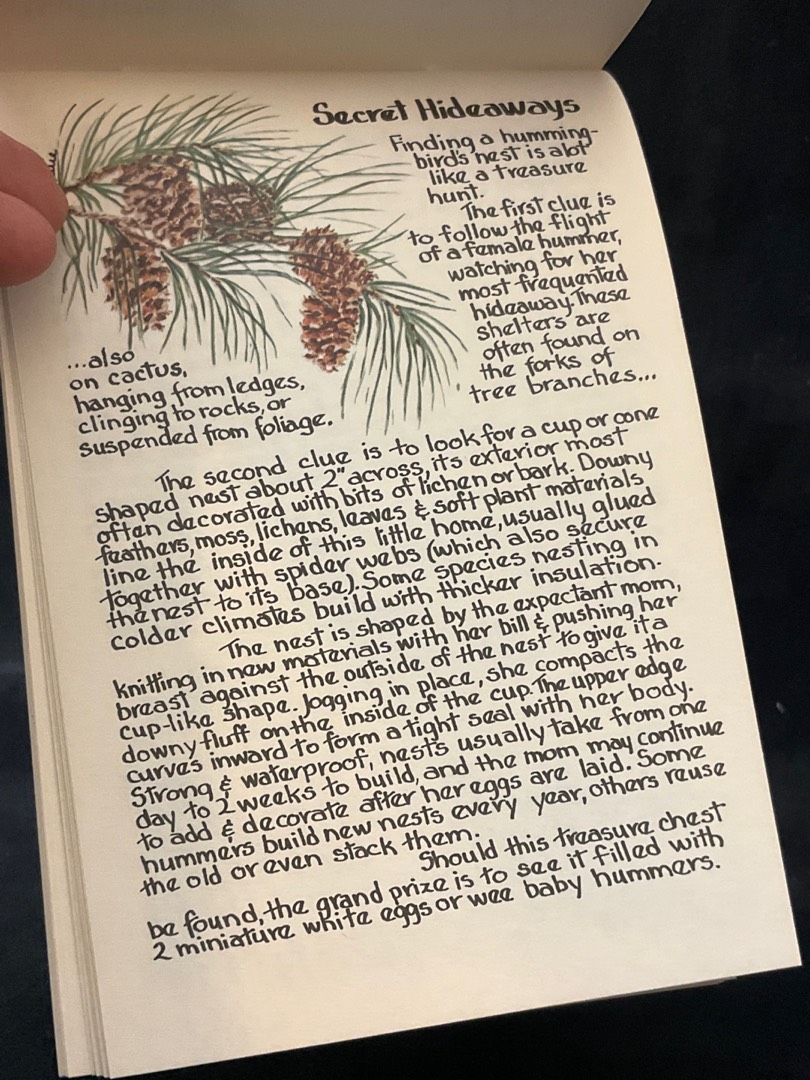 Secret Hideaways
Finding a humming-
bird's nest is alot
like a treasure
hunt.
The first clue is
to follow the flight
of a female hummer,
watching for her
most frequented
hideaway. These
shelters are
often found on
the forks of
tree branches...
...also
on cactus,
hanging from ledges,
clinging to rocks, or
suspended from foliage.
The second clue is to look for a cup or cone
shaped nest about 2" across, its exterior most
often decorated with bits of lichen or bark. Downy
feathers, moss, lichens, leaves & soft plant materials
line the inside of this little home, usually glued
together with spider webs (which also secure
the nest to its base). Some species nesting in
colder climates build with thicker insulation.
The nest is shaped by the expectant mom,
knitting in new materials with her bill & pushing her
breast against the outside of the nest to give it a
cup-like shape. Jogging in place, she compacts the
downy fluff on the inside of the cup. The upper edge
curves inward to form a tight seal with her body.
Strong & waterproof, nests usually take from one
day to 2 weeks to build, and the mom may continue
to add & decorate after her eggs are laid. Some
hummers build new nests every year, others reuse
the old or even stack them.
Should this treasure chest
be found, the grand prize is to see it filled with
2 miniature white eggs or wee baby hummers.